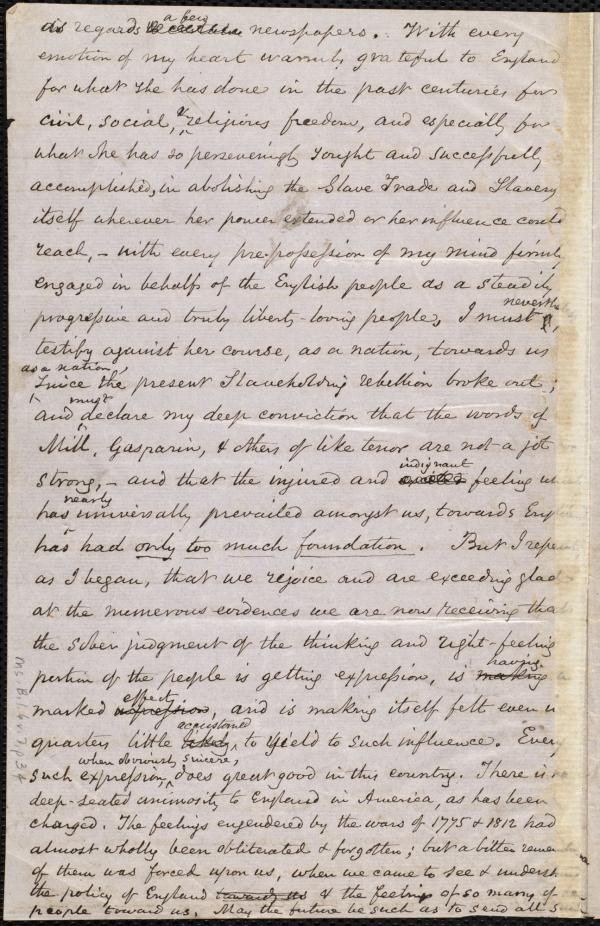 as regards a few newspapers. With every
emotion of my heart warmly grateful to England
for what she has done in the past centuries for
civil, social, & religious freedom, and especially for
what she has so perseveringly sought and successfully
accomplished, in abolishing the Slave Trade and Slavery
itself wherever her power extended or her influence could
reach, – with every prepossession of my mind firmly
engaged in behalf of the English people as a steadily
progressive and truly liberty-loving people, I must neverth
testify against her course, as a nation, towards us
as a nation, since the present Slaveholding rebellion broke out;
and must declare my deep conviction that the words of
Mill, Gasparin, & others of like tenor are not a jot
strong, – and that the injured and indignant excited feeling
has nearly universally prevailed amongst us, towards Eng
has had only too much foundation. But I repea
as I began, that we rejoice and are exceeding glad
at the numerous evidences we are now receiving tha
the sober judgment of the thinking and right-feeling
portion of the people is getting expression, is having making a
marked effect impression, and is making itself felt even i
quarters little accustomed likely to yield to such influence. Every
such expression, when obviously sincere, does great good in this country. There is no
deep-seated animosity to England in America, as has been
charged. The feelings engendered by the wars of 1775 & 1812 had
almost wholly been obliterated & forgotten; but a bitter remem
of them was forced upon us, when we came to see & underst
the policy of England towards us & the feeling of so many of
people toward us. May the future be such as to send all s
Ms.B.1.6 v.7, p.34